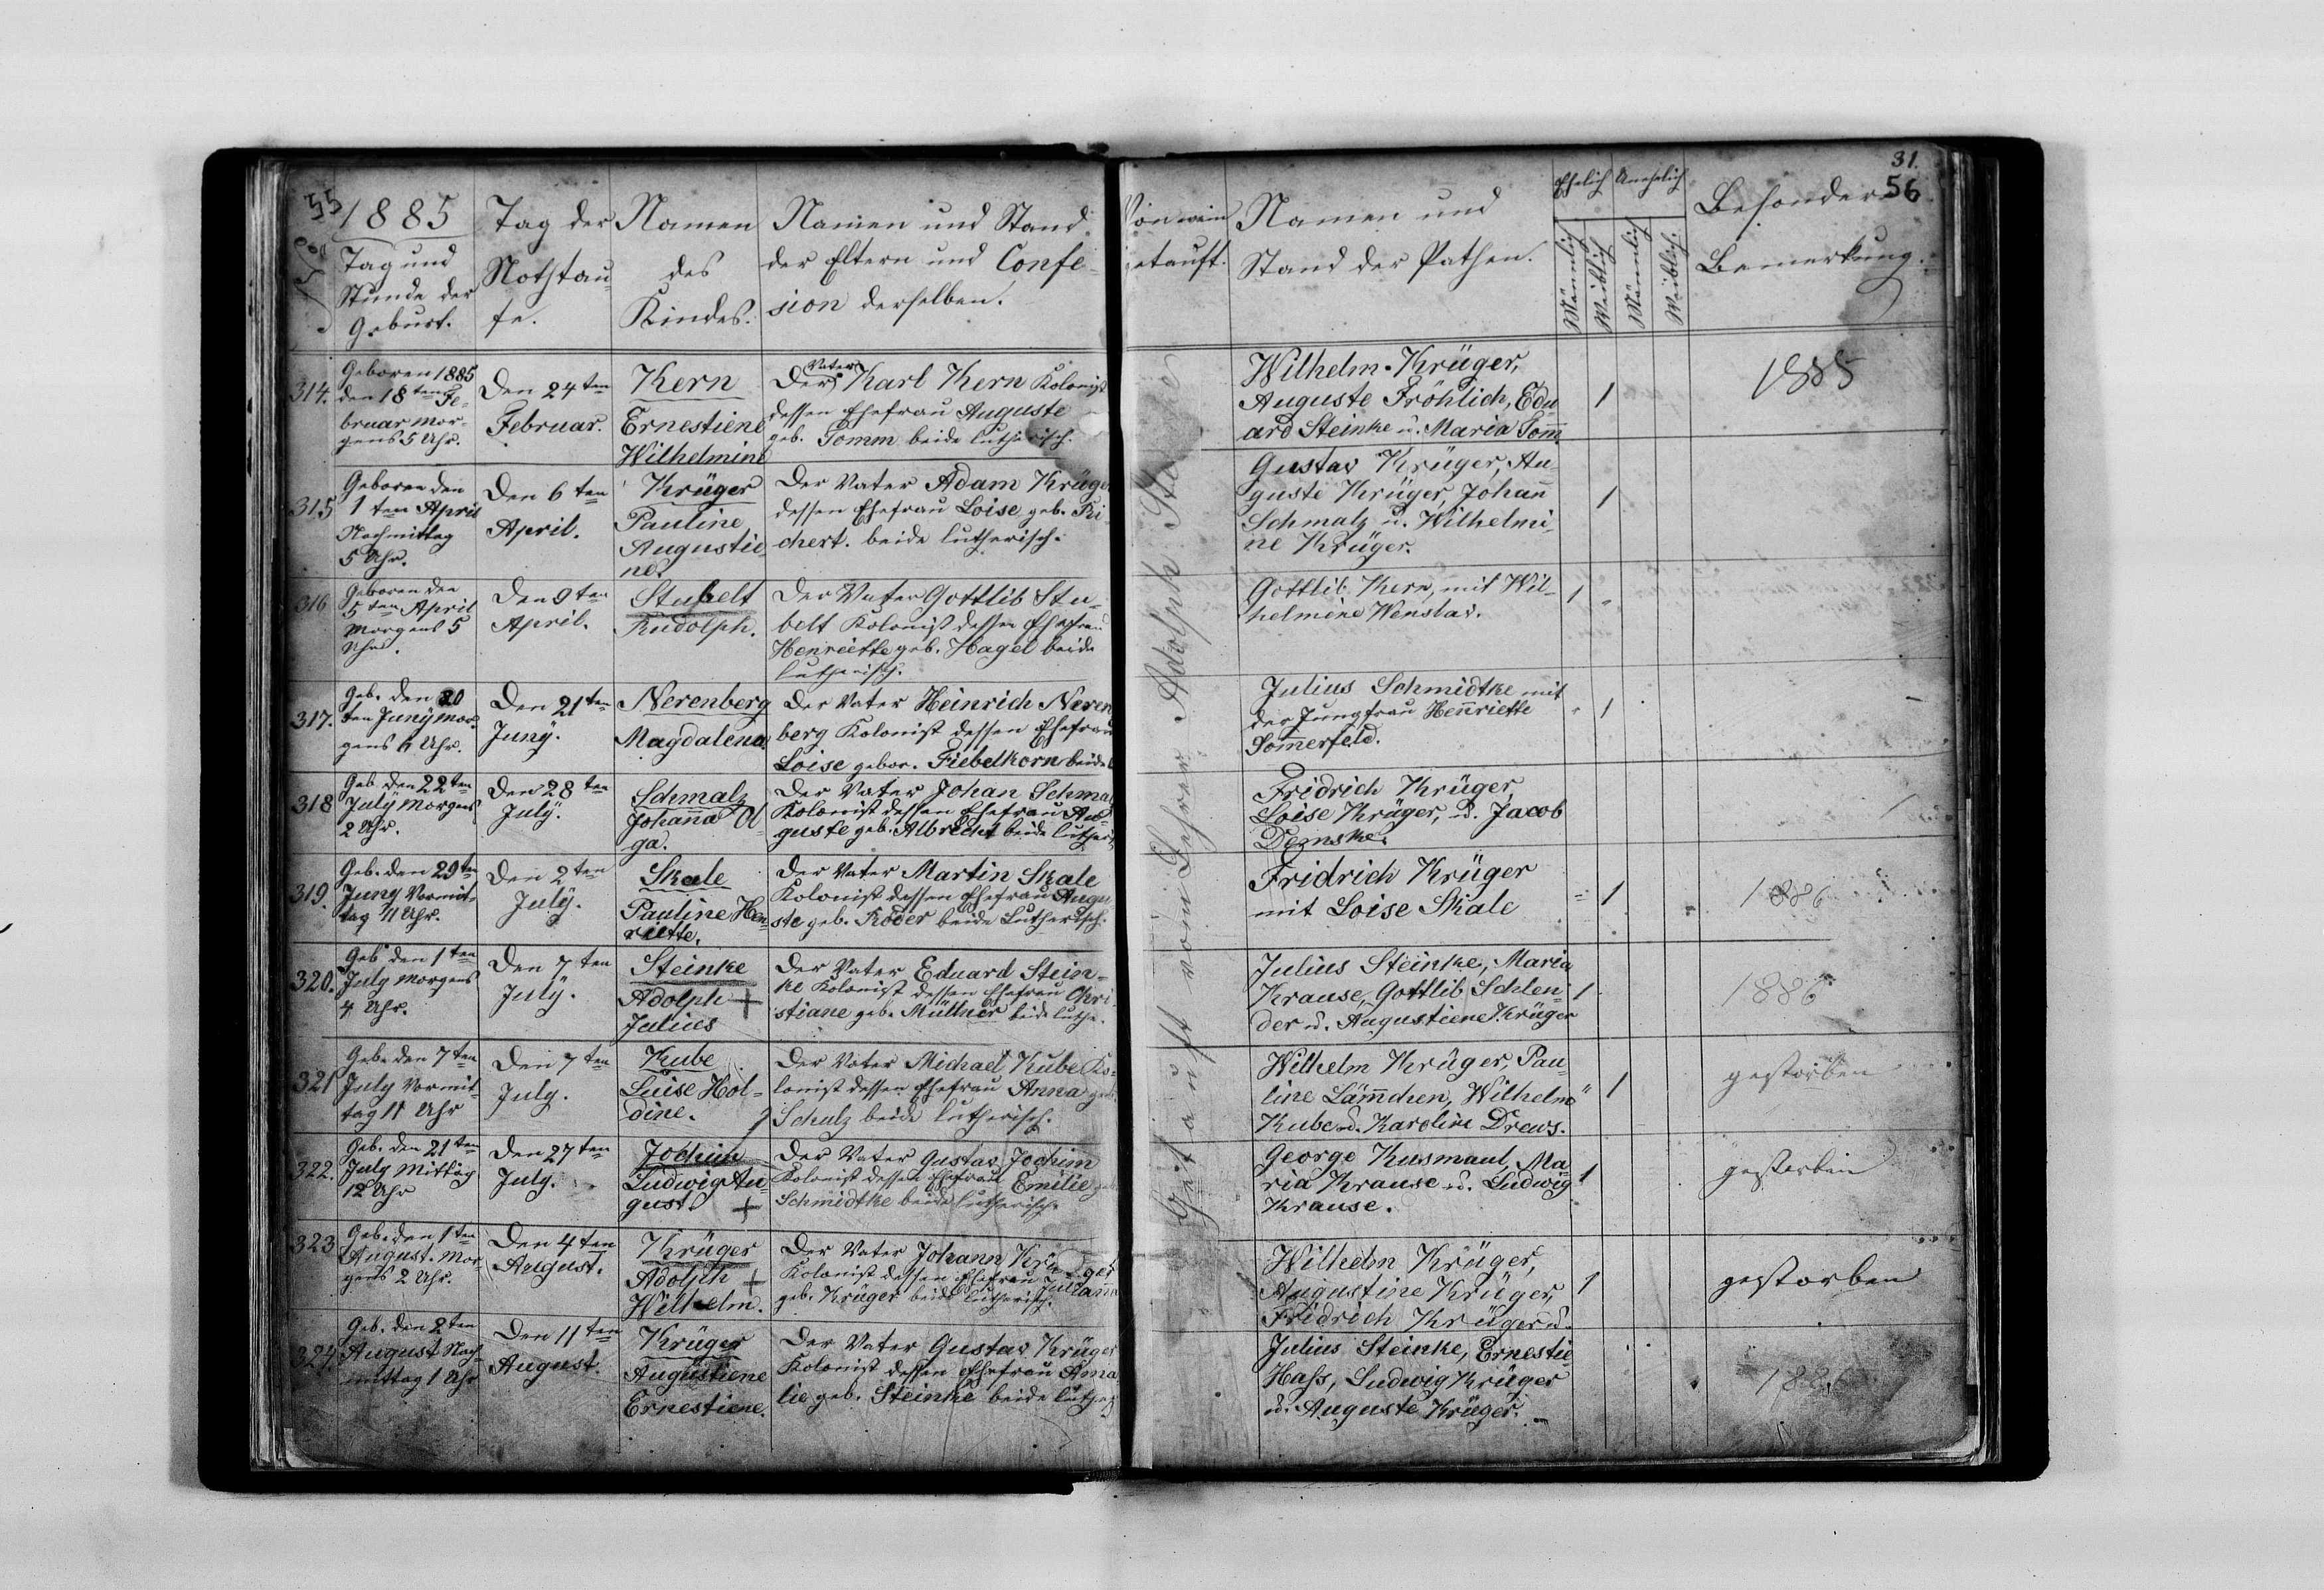 55
1885
Tag und
Stunde der
Geburt.
Tag der
Nothtau-
fe.
Namen
des
Kindes.
Namen und Stand
der Eltern und Confe-
sion derselben.
314.
Geboren 1885
den 18ten Fe-
bruar Mor-
gens 5 Uhr.
Den 24ten
Februar.
Kern
Ernestiene
Wilhelmine
Der Vater Karl Kern Kolonist
dessen Ehefrau Auguste
geb. Tomm beide lutherisch.
315
Geboren den
1ten April
Nachmittag
5 Uhr.
Den 6ten
April.
Krüger
Pauline
Augustie-
ne.
Der Vater Adam Krüger
dessen Ehefrau Loise geb. Ri-
chert. beide lutherisch.
316
Geboren den
5ten April
Morgens 5
Uhr.
Den 9ten
April.
Stubelt
Rudolph.
Der Vater Gottlib Stu-
belt Kolonist dessen Ehefrau
Henriette geb. Hagel beide
lutherisch.
317.
Geb. den 20
ten Juny Mor-
gens 6 Uhr.
Den 21ten
Juny.
Nerenberg
Magdalena.
Der Vater Heinrich Neren
berg Kolonist dessen Ehefrau
Loise gebor. Fiebelkorn beide
318
Geb den 22ten
July Morgens
2 Uhr.
Den 28ten
July.
Schmalz
Johanna Ol-
ga.
Der Vater Johan Schmalz
Kolonist dessen Ehefrau Au-
guste geb. Albrecht beide luther
319.
Geb. den 29ten
Juny Vormit-
tag 11 Uhr.
Den 2ten
July.
Skale
Pauline Hen-
riette.
Der Vater Martin Skale
Kolonist dessen Ehefrau Augu
ste geb. Röder beide Lutherisch.
320.
Geb den 1ten
July Morgens
4 Uhr.
Den 7ten
July.
Steinke
Adolph +
Julius
Der Vater Eduard Stein-
ke Kolonist dessen Ehefrau Chri
stiane geb. Müllner beide luthe.
321
Geb. den 7ten
July Vormit-
tag 11 Uhr
Den 7ten
July.
Kube
Luise Hol-
dine.
Der Vater Michael Kube Ko-
lonist dessen Ehefrau Anna geb.
Schulz beide lutherisch.
322.
Geb. den 21ten
July Mittag
12 Uhr
Den 27ten
July.
Jochim
Ludwig Au-
gust. +
Der Vater Gustav Jochim
Kolonist dessen Ehefrau Emilie
Schmidtke beide lutherisch.
323
Geb. den 1ten
August. Mor-
gens 2 Uhr.
Den 4ten
August.
Krüger
Adolph +
Wilhelm.
Der Vater Johann Krüger
Kolonist dessen Ehefrau Juliane
geb. Krüger beide lutherisch.
324.
Geb. den 2ten
August Nach-
mittag 1 Uhr
Den 11ten
August.
Krüger
Augustiene
Ernestiene.
Der Vater Gustav Krüger
Kolonist dessen Ehefrau Ama
lie geb. Steinke beide luther
31.
56
Von wem
getauft.
Namen und
Stand der Pathen.
Ehelich
Unehelich
Männlich
Weiblich
Männlich
Weiblich.
Besondere
Bemerkung.
Getauft vom Lehrer Adolph
Wilhelm Krüger,
Auguste Fröhlich, Edu
ard Steinke u. Maria Tomm
1
1885
Gustav Krüger, Au-
guste Krüger, Johann
Schmalz u. Wilhelmi-
ne Krüger.
1
Gottlib Kern, mit Wil-
helmine Wenslav.
1
Julius Schmidtke mit
der Jungfrau Henriette
Sommerfeld.
1
Fridrich Krüger,
Loise Krüger, u. Jacob
Demske.
Fridrich Krüger
mit Loise Skale
1
1886
Julius Steinke, Maria
Krause, Gottlib Schlen-
der u. Augustiene Krüger
1
1886
Wilhelm Krüger, Pau-
line Lämmchen, Wilhelm
Kube u. Karoline Drews.
1
gestorben
George Kusmaul, Ma-
ria Krause u. Ludwig
Krause.
1
gestorben
Wilhelm Krüger,
Augustine Krüger
Fridrich Krüger u.
1
gestorben
Julius Steinke, Ernestie
Hass, Ludwig Krüger
u. Auguste Krüger.